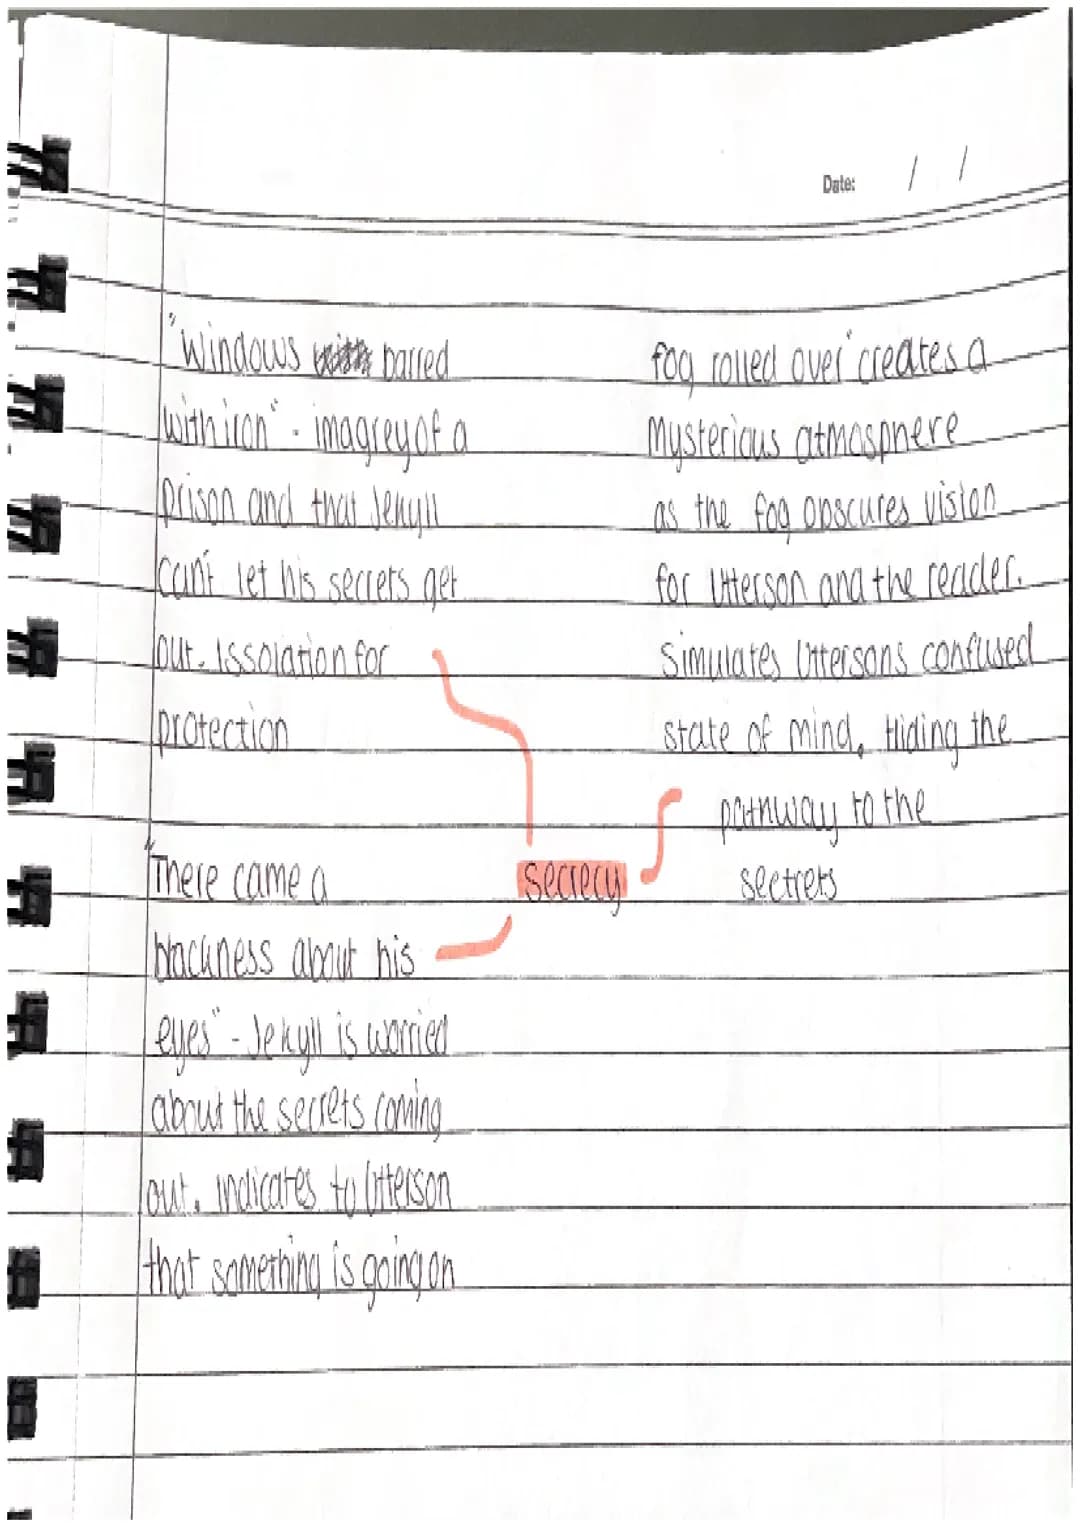 Date: / /
"Windows barred
with iron" - imagrey of a
prison and that Jekyll
can't let his secrets get
out. Issolation for
protection
"There came a
blackness about his
eyes" - Jekyll is worried
about the secrets coming
out. indicates to Utterson
that something is going on
secrecy
fog rolled over" creates a
mysterious atmosphere
as the fog obscures vision
for Utterson and the reader.
Simulates Uttersons confused
state of mind. Hiding the
pathway to the
sectrets